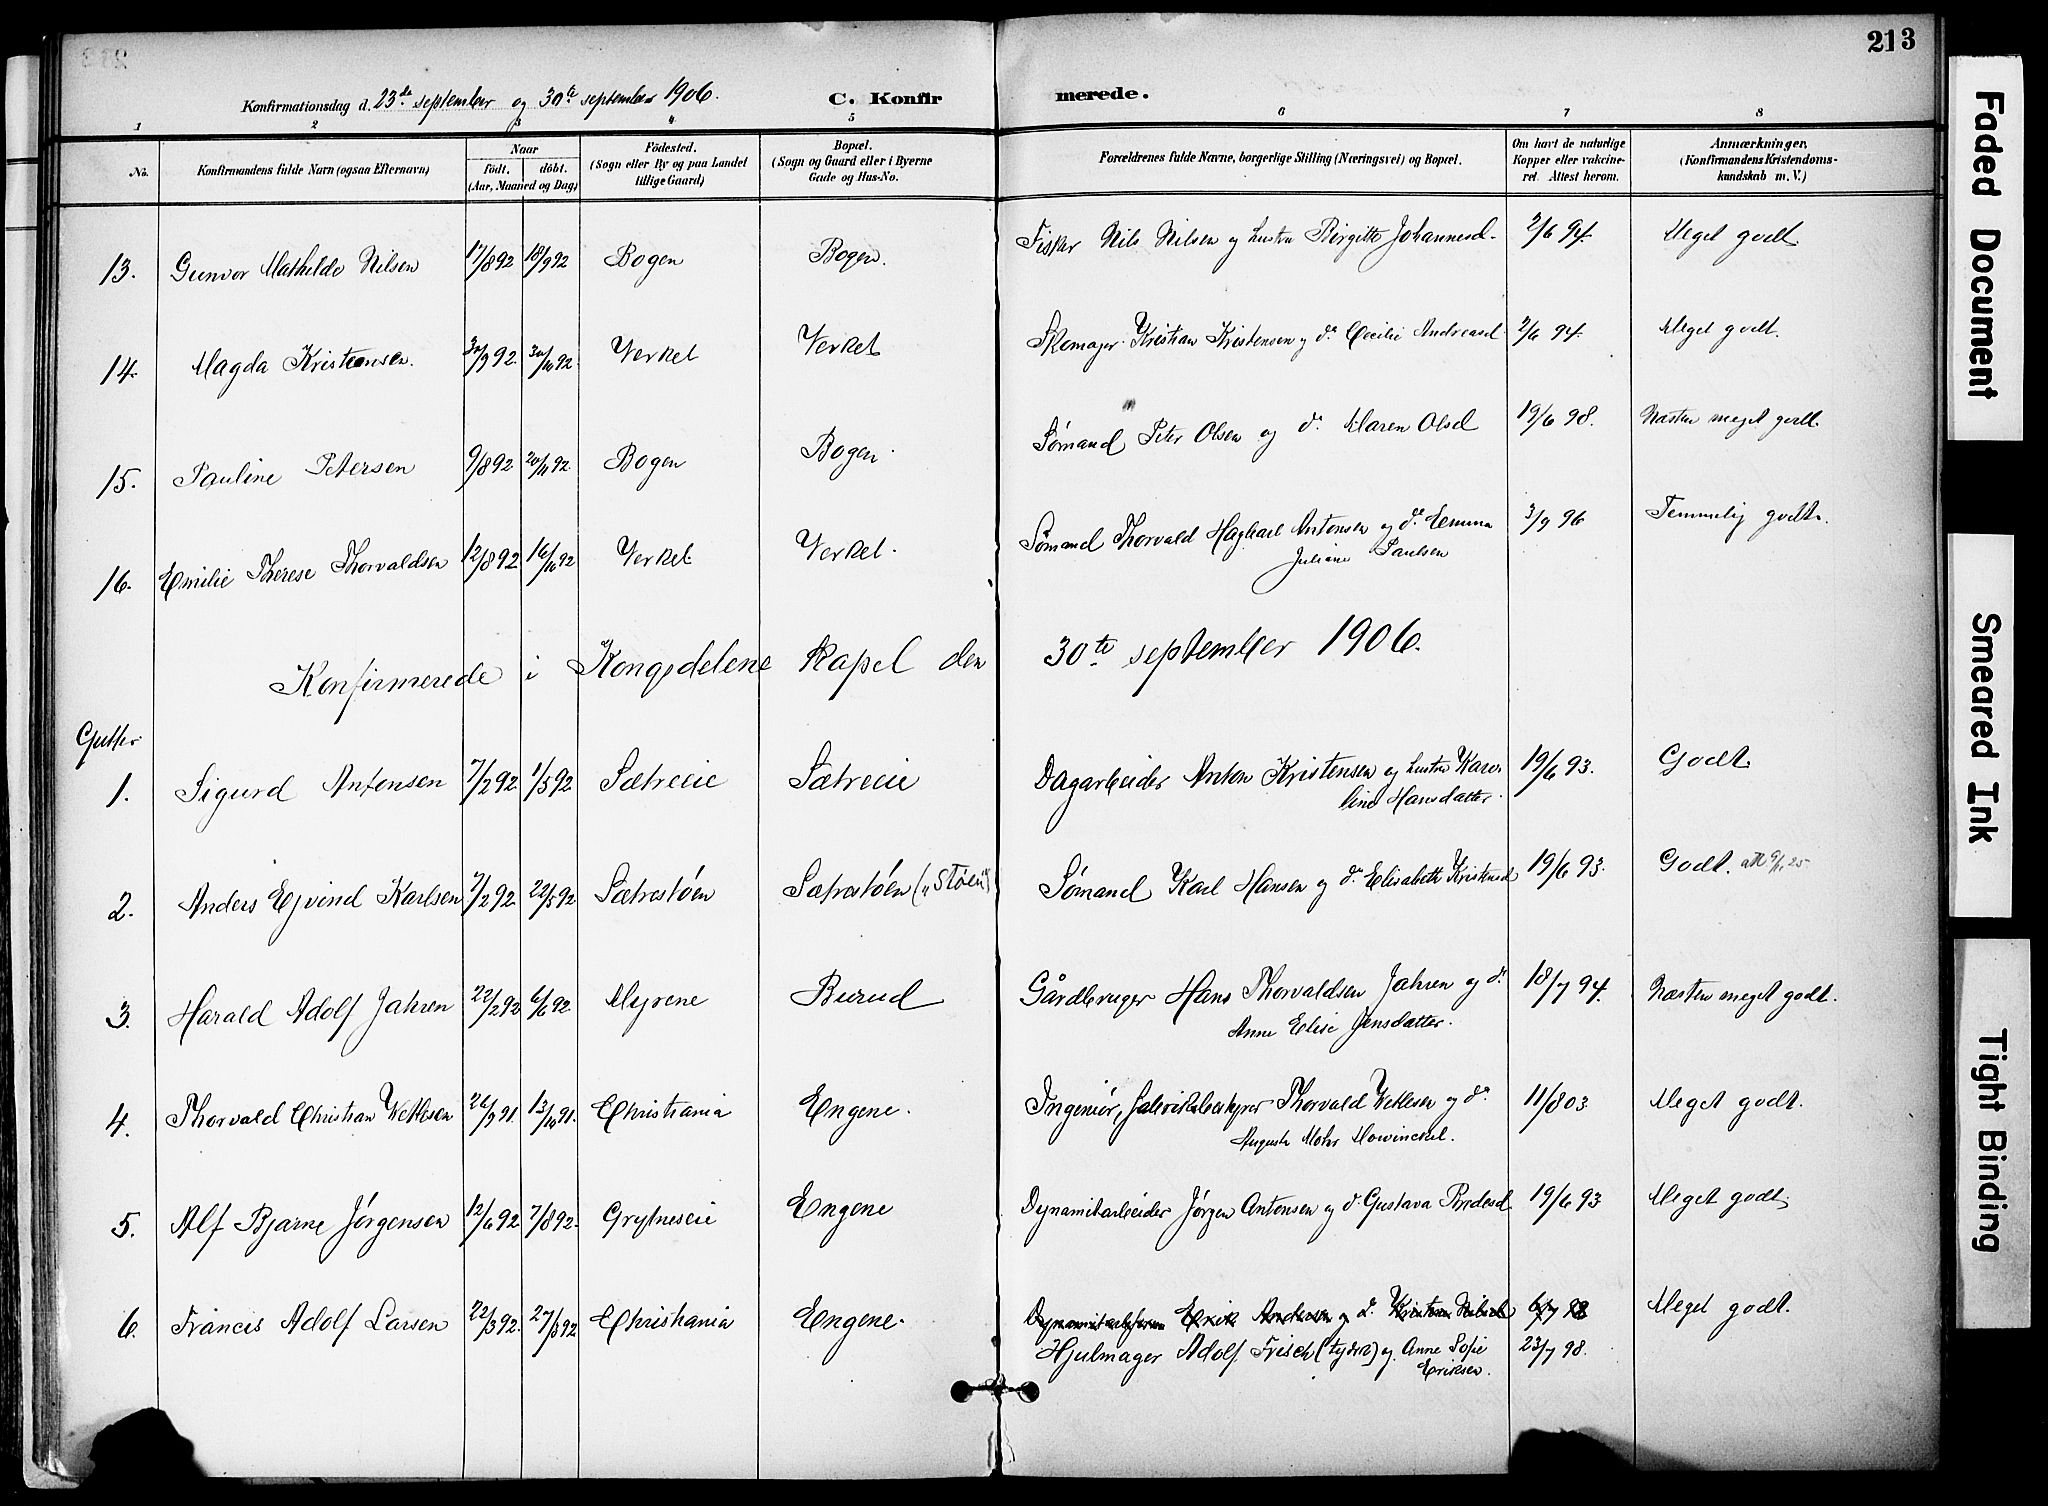 213
Konfirmationsdag d. 23de september og 30te september 1906. C. Konfirmerede.
1 2 3 4 5 6 7 8
No. Konfirmandens fulde Navn (ogsaa Efternavn) Naar født. døbt. (Aar, Maaned og Dag) Fødested. (Sogn eller By og paa Landet tillige Gaard) Bopæl. (Sogn og Gaard eller i Byerne Gade og Hus-No. Forældrenes fulde Navne, borgerlige Stilling (Næringsvei) og Bopæl. Om havt de naturlige Kopper eller vakcineret. Attest herom. Anmærkninger. (Konfirmandens Kristendomskundskab m. V.)
13. Gunvor Mathilde Nilsen 17/8 92 18/9 92 Bogen Bogen. Fisker Nils Nilsen og hustru Birgitte Johannesd. 2/6 94. Meget godt
14. Magda Kristensen. 30/9 92. 30/10 92. Verket Verket Skomager Kristian Kristensen og do Cecilie Andreasd. 2/6 94. Meget godt.
15. Pauline Petersen 9/8 92 20/11 92. Bogen Bogen. Sømand Peter Olsen og do Maren Olsd 19/6 98. Næsten meget godt.
16. Emilie Therese Thorvaldsen 12/8 92 16/10 92 Verket Verket. Sømand Thorvald Hagbart Antonsen og do Emma 3/7 96 Temmelig godt.
Juliane Paulsen
Konfirmerede i Kongsdelene kapel den 30te september 1906.
Gutter
1. Sigurd Antonsen 7/2 92. 1/5 92 Sætreeie Sætreeie Dagarbeider Anton Kristensen og hustru Karo- 19/6 93. Godt.
line Hansdatter.
2. Anders Ejvind Karlsen 7/2 92. 22/5 92 Sætrestøen Sætrestøen („Støen") Sømand Karl Hansen og do Elisabeth Kristensd 19/6 93. Godt. att 9/1 25
3. Harald Adolf Jahren 22/2 92 6/6 92. Myrene Burud Gårdbruger Hans Thorvaldsen Jahren og do 18/7 94. Næsten meget godt.
Anne Elise Jensdatter.
4. Thorvald Christian Wetlesen 26/9 91. 13/10 91. Christiania Engene. Ingeniør, fabrikbestyrer Thorvald Wetlesen og do 11/8 03. Meget godt.
Augusta Mohr Howinckel.
5. Alf Bjarne Jørgensen 12/6 92 7/8 92. Grytneseie Engene Dynamitarbeider Jørgen Antonsen og do Gustava Bredesd 19/6 93 Meget godt.
6. Francis Adolf Larsen 22/3 92. 27/3 92 Christiania Engene. Erik Andersen og do 6/7 98 Meget godt.
Hjulmager Adolf Frisch (tysker) og Anne Sofie 23/7 98.
Eriksen.
Faded Document
Smeared Ink
Tight Binding